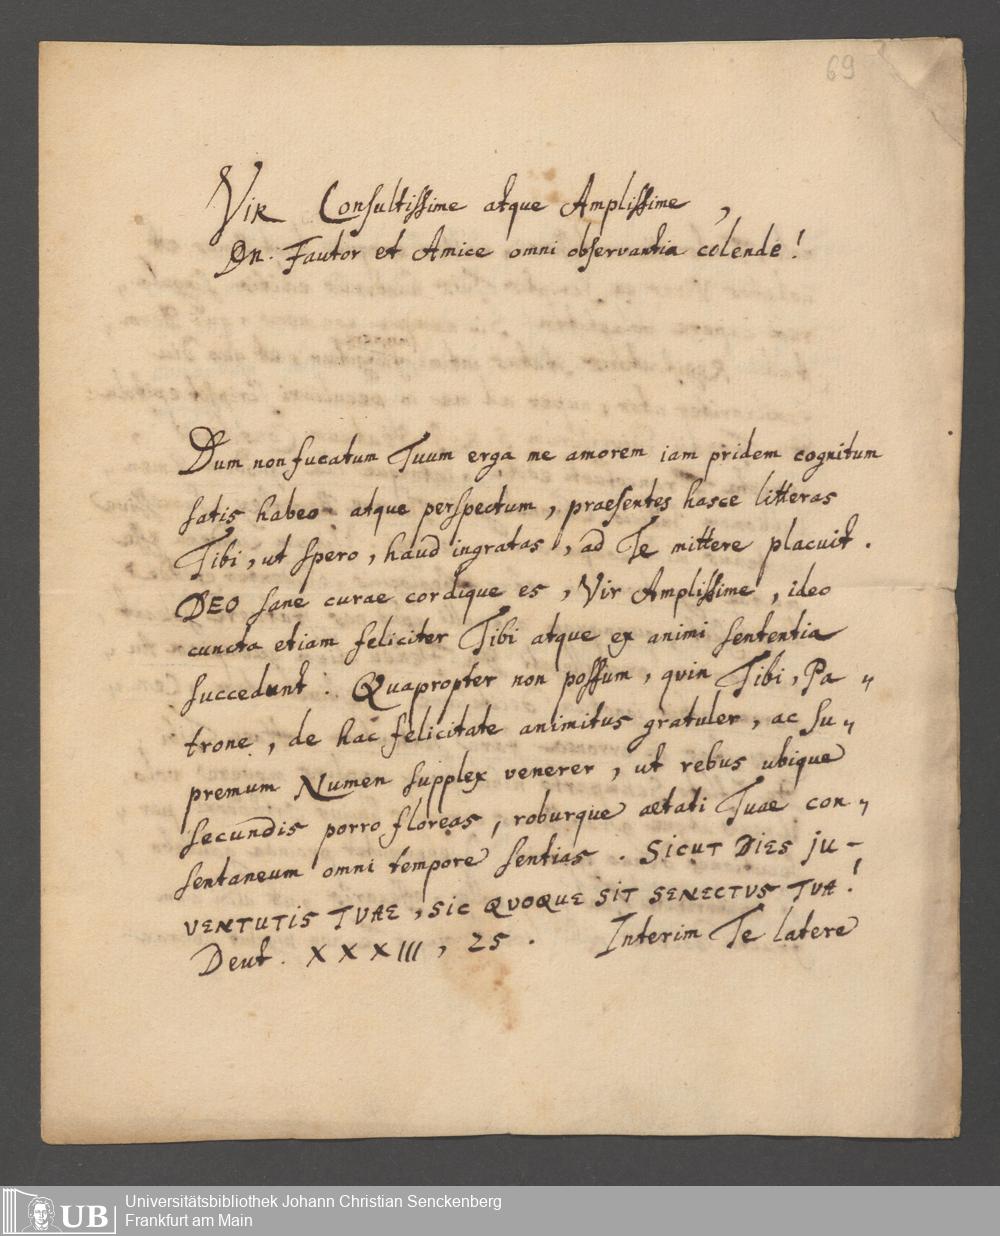 69
Vir Consultissime atque Amplissime,
Dn. Fautor et Amice omni observantia colende!
Dum non fucatum Tuum erga me amorem iam pridem cognitum
satis habeo atque perspectum, praesentes hasce litteras
Tibi, ut spero, haud ingratas, ad Te mittere placuit.
DEO sane curae cordique es, Vir Amplissime, ideo
cuncta etiam feliciter Tibi atque ex animi sententia
succedunt. Quapropter non possum, quin Tibi, Pa-
trone, de hac felicitate animitus gratuler, ac su-
premum Numen supplex venerer, ut rebus ubique
secundis porro floreas, roburque aetati Tuae con-
sentaneum omni tempore sentias. SICUT DIES JU-
VENTUTIS TVAE, SIC QVOQVE SIT SENECTVS TVA!
Deut. XXXIII, 25. Interim Te latere
UB
Universitätsbibliothek Johann Christian Senckenberg
Frankfurt am Main